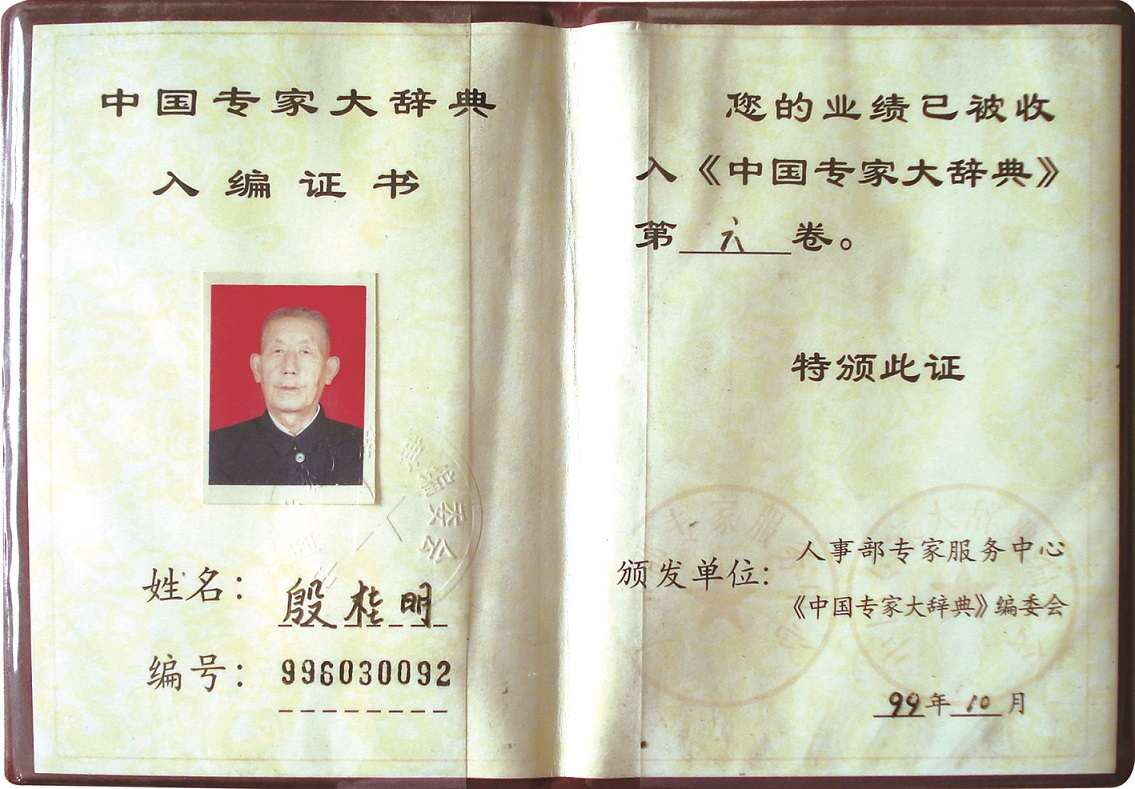 中国专家大辞典
入编证书
编委会
姓名：殷桂明
编号：996030092
您的业绩已被收
入《中国专家大辞典》
第六卷。
特颁此证
颁发单位：人事部专家服务中心
《中国专家大辞典》编委会
99年10月